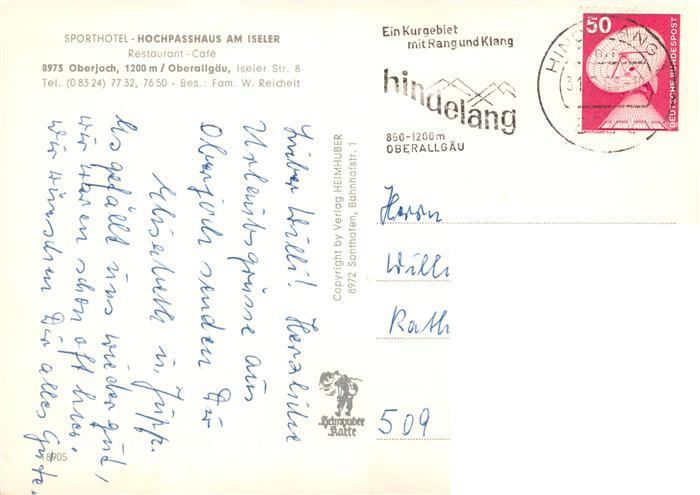 SPORTHOTEL - HOCHPASSHAUS AM ISELER
Restaurant - Café
8973 Oberjoch, 1200 m / Oberallgäu, Iseler Str. 8
Tel. (0 83 24) 77 32, 76 50 - Bes.: Fam. W. Reichelt
Ein Kurgebiet
mit Rang und Klang
hindelang
850-1200m
OBERALLGÄU
50
DEUTSCHE BUNDESPOST
HINDELANG
Lieber Willi! Herzliche
Urlaubsgrüsse aus
Oberjoch senden Dir
Elisabeth u. Jupp.
Es gefällt uns wieder gut,
wir waren schon oft hier.
Wir wünschen Dir alles Gute.
Copyright by Verlag HEIMHUBER
8972 Sonthofen, Bahnhofstr. 1
Heimhuber
Karte
Herrn
Willi
Kath
509
18905